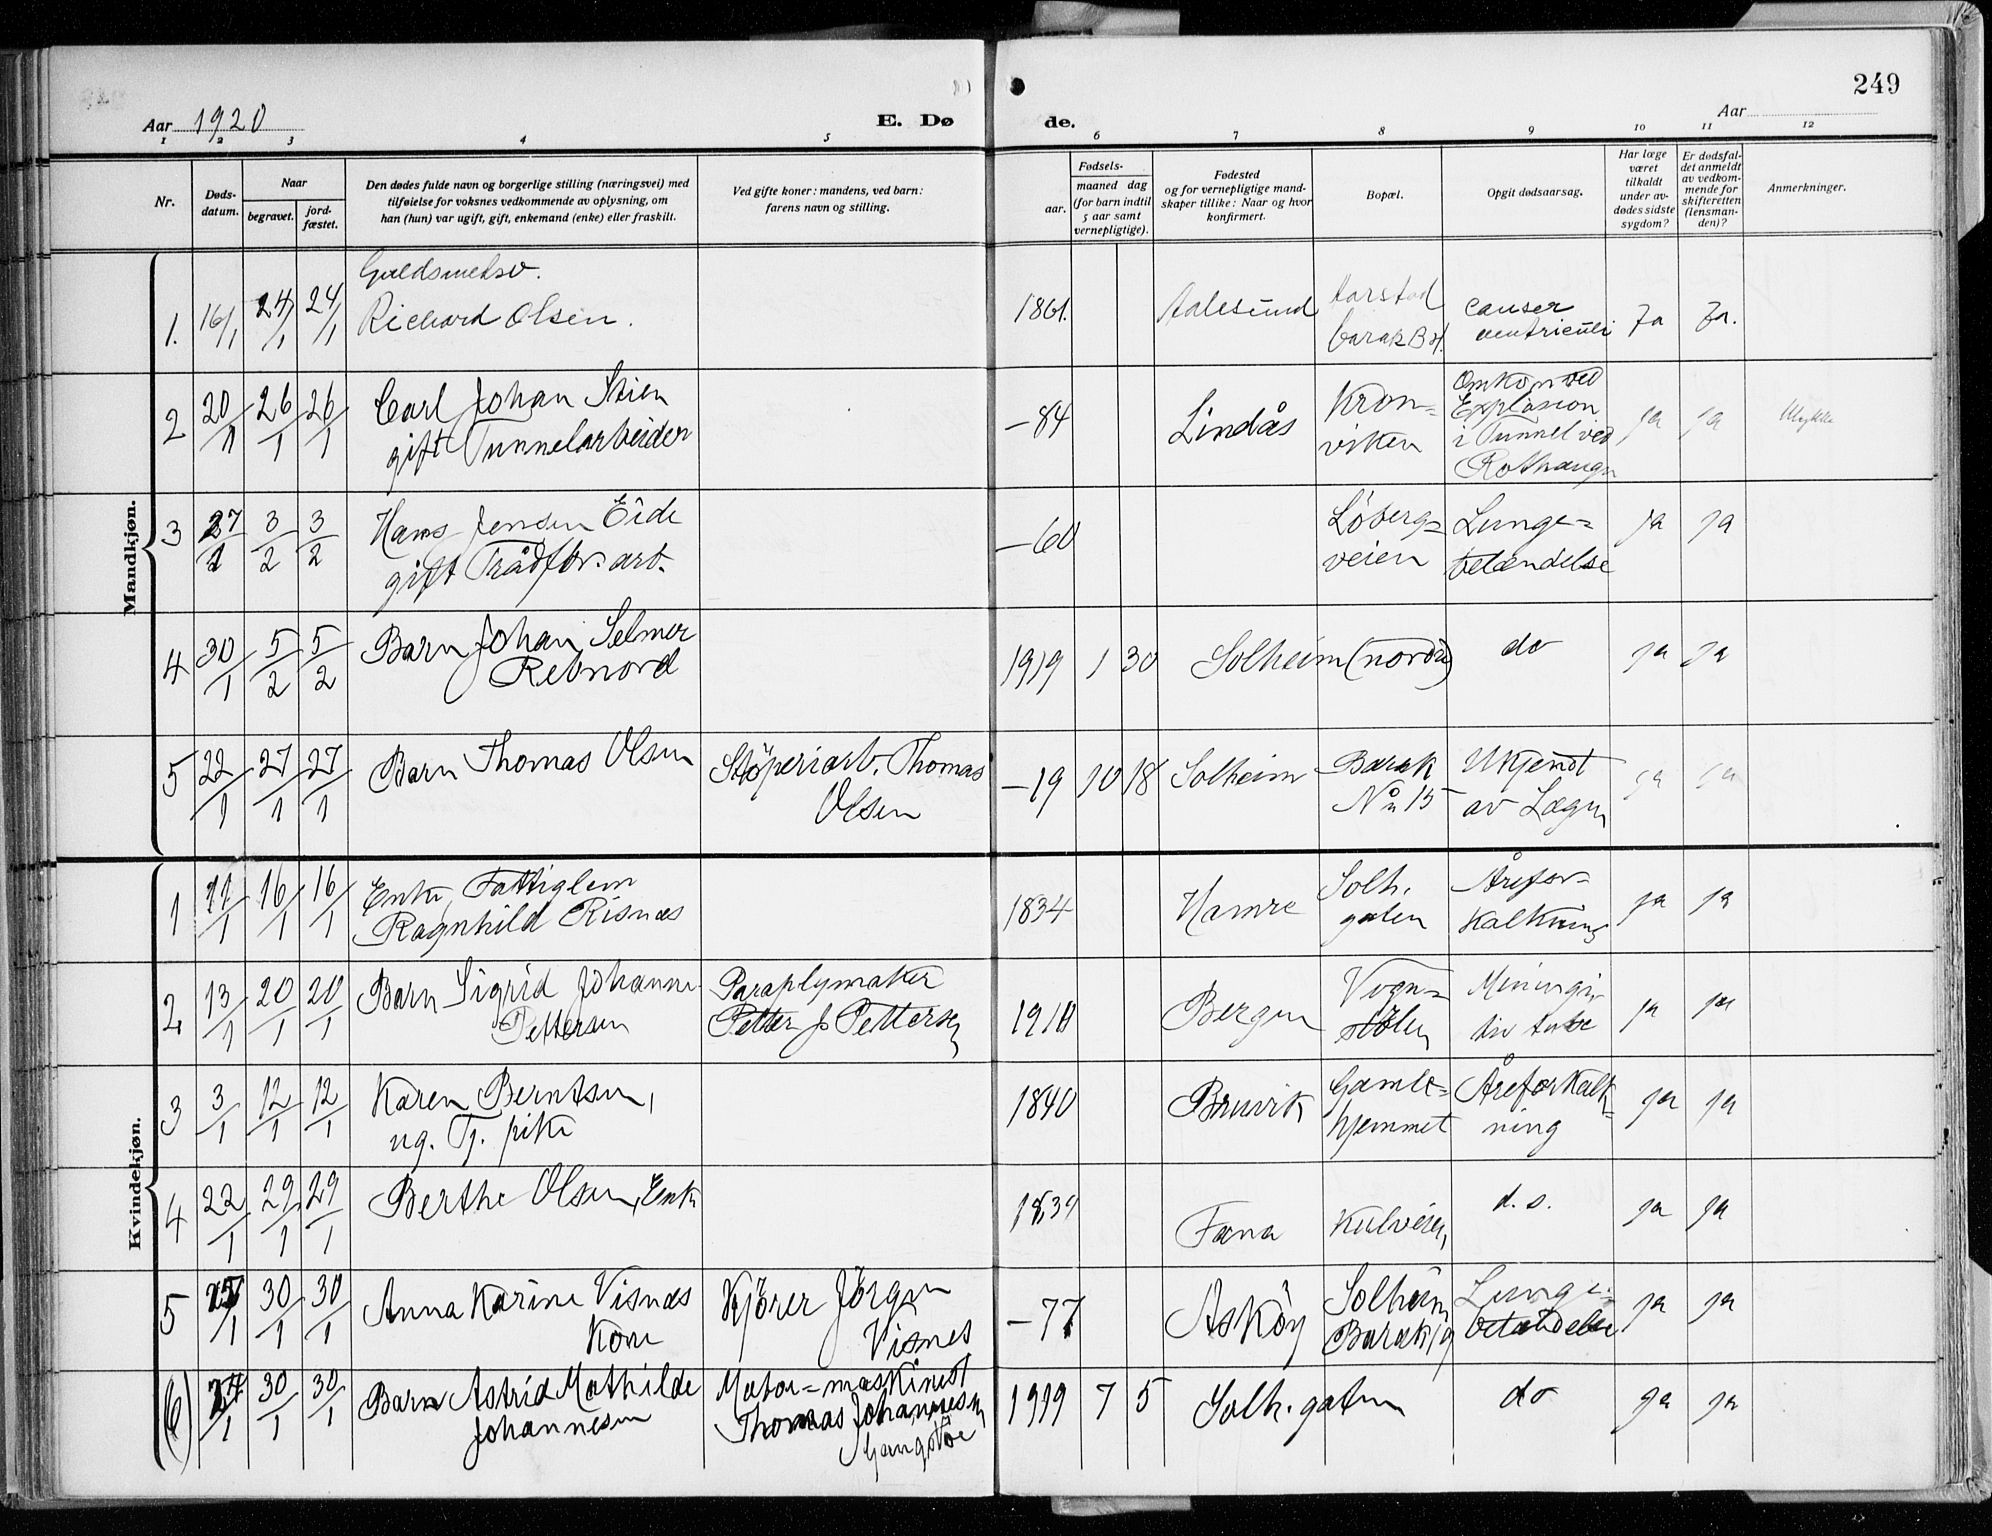 249
Aar 1920
E. Dø
de.
Aar
1 2 3 4 5 6 7 8 9 10 11 12
Nr.
Døds-
datum.
Naar
begravet.
jord-
fæstet.
Den dødes fulde navn og borgerlige stilling (næringsvei) med
tilføielse for voksnes vedkommende av oplysning, om
han (hun) var ugift, gift, enkemand (enke) eller fraskilt.
Ved gifte koner: mandens, ved barn:
farens navn og stilling.
Fødsels-
aar.
maaned dag
(for barn indtil
5 aar samt
vernepligtige).
Fødested
og for vernepligtige mand-
skaper tillike: Naar og hvor
konfirmert.
Bopæl.
Opgit dødsaarsag.
Har læge
været
tilkaldt
under av-
dødes sidste
sygdom?
Er dødsfal-
det anmeldt
av vedkom-
mende for
skifteretten
(lensman-
den)?
Anmerkninger.
Mandkjøn.
1. 16/1 24/1 24/1
Richard Olsen.
1861. Aalesund
Aarstad
barak
cancer
ventriculi
Ja Ja.
2 20/1 26/1 26/1
Carl Johan Stien
gift Tunnelarbeider
-84 Lindås
Kron-
viken
Omkom ved
Explosion
i Tunnel ved
ja ja Ulykke
3 27/1 3/2 3/2
Hans Jensen Eide
gift Trådfbr. arb.
-60
Løberg-
veien
Lunge-
betændelse
ja ja
4 30/1 5/2 5/2
Barn Johan Selmer
Rebnord
1919 1 30 Solheim (nordre) do ja ja
5 22/1 27/1 27/1
Barn Thomas Olsen
Støperiarb. Thomas
Olsen
-19 10 18 Solheim
Barak
No 15
Ukjendt
av Lægen
ja ja
Kvindekjøn.
1 11/1 16/1 16/1
Enke, Fattiglem
Ragnhild Risnæs
1834 Hamre
Solh.
gaten
Årefor-
kalkning
ja ja
2 13/1 20/1 20/1
Barn Sigrid Johanne
Pettersen
Paraplymaker
Petter J. Pettersen
1910 Bergen
Vogn-
stølen
ja ja
3 3/1 12/1 12/1
Karen Berntsen,
ug. Tj. pike
1840 Bruvik
Gamle-
hjemmet
Åreforkalk-
ning
ja ja
4 22/1 29/1 29/1
Berthe Olsen, Enke
1834 Fana
d.s. ja ja
5 30/1 30/1
Anna Karine Visnæs
Kone
Kjører Jørgen
Visnes
-77 Askøy
Solheim
Barak 19
Lunge-
betændelse
ja ja
(6) 24/1 30/1 30/1
Barn Astrid Mathilde
Johannesen
Motor-maskinist
Thomas Johannesen
1919 7 5 Solh. gaten do ja ja